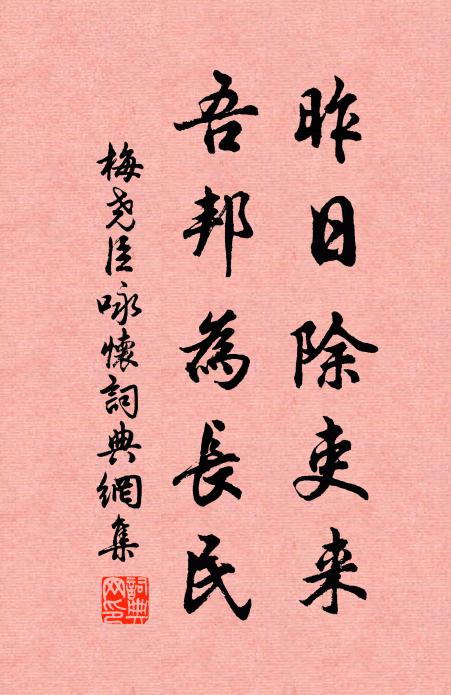 昨日除吏来
吾邦為長民
梅尧臣咏懷詞典網集
詞典網印